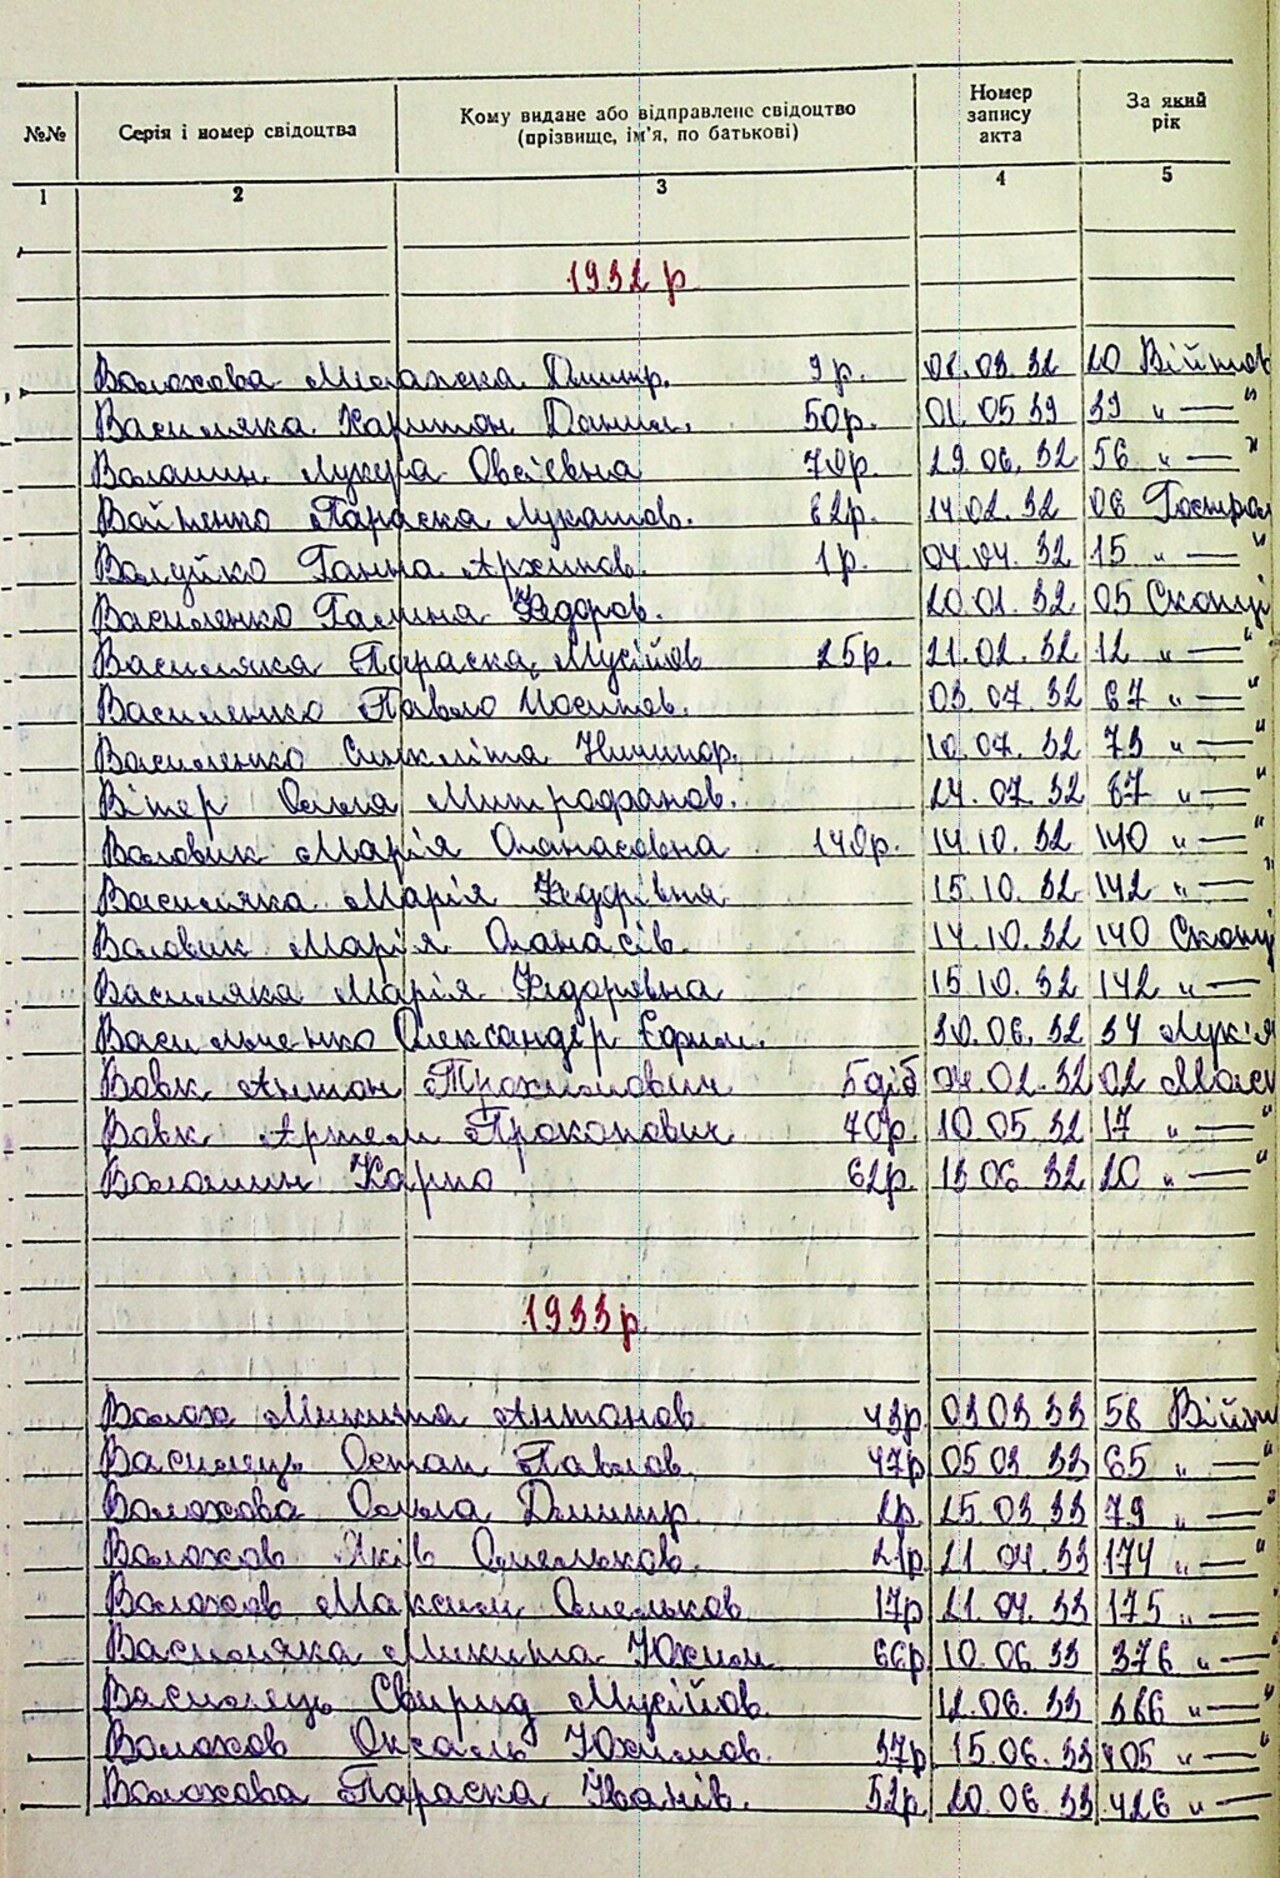 №№ Серія і номер свідоцтва Кому видане або відправлене свідоцтво (прізвище, ім'я, по батькові) Номер запису акта За який рік
1 2 3 4 5
1932 р
Волохова Меланска Дмитр. 9 р. 02.03.32 20 Війтов
Василяка Харитон Данил. 50р. 01.05 39 39 „ — "
Волошин Лукер'а Овсіевна 70р. 29.06.32 56 „ — "
Войтенко Параска Лукашов. 62р. 14.02.32 06 Гострол
Валуйко Ганна Архипов. 1р. 04.04.32 15 „ — "
Василенко Галина Федоров. 20.01.32 05 Скопці
Василяка Параска Мусійов 25р. 21.02.32 12 „ — "
Василенко Павло Йосипов. 03.07.32 67 „ — "
Василенко Синкліта Ничипор. 10.07.32 73 „ — "
Вітер Олла Митрофанов. 24.07.32 87 „ — "
Воловик Марія Опанасовна 140р. 14.10.32 140 „ — "
Василяка Марія Федорівна 15.10.32 142 „ — "
Воловик Марія Опанасів. 14.10.32 140 Скопц
Василяка Марія Федоровна 15.10.32 142 „ —
Васильченко Олександер Ефим. 30.06.32 34 Лук'я
Вовк Антон Трохимович 5 діб 04.02.32 02
Вовк Артем Прокопович 70р. 10.05.32 17 „ — "
Волошин Карпо 62р. 13 06.32 20 „ — "
1933р.
Волох Микита Антонов 43р. 03 03 33 58 Війт
Василець Остап Павлов. 47р 05 03 33 65 „ — "
Волохова Олла Дмитр. 2р. 25.03 33 79 „ — "
Волохов Яків Омельков. 21р. 21.04.33 174 „ — "
Волохов Максим Омельков 17р 21.04.33 175 „ —
Василяка Микита Юхим. 66р. 10.06.33 376 „ —
Василець Свирид Мусійов. 12.06.33 386 „ — "
Волохов Юхимов. 37р 15.06.33 405 „ — "
Волохова Параска Іванів. 52р. 20.06.33 426 „ —